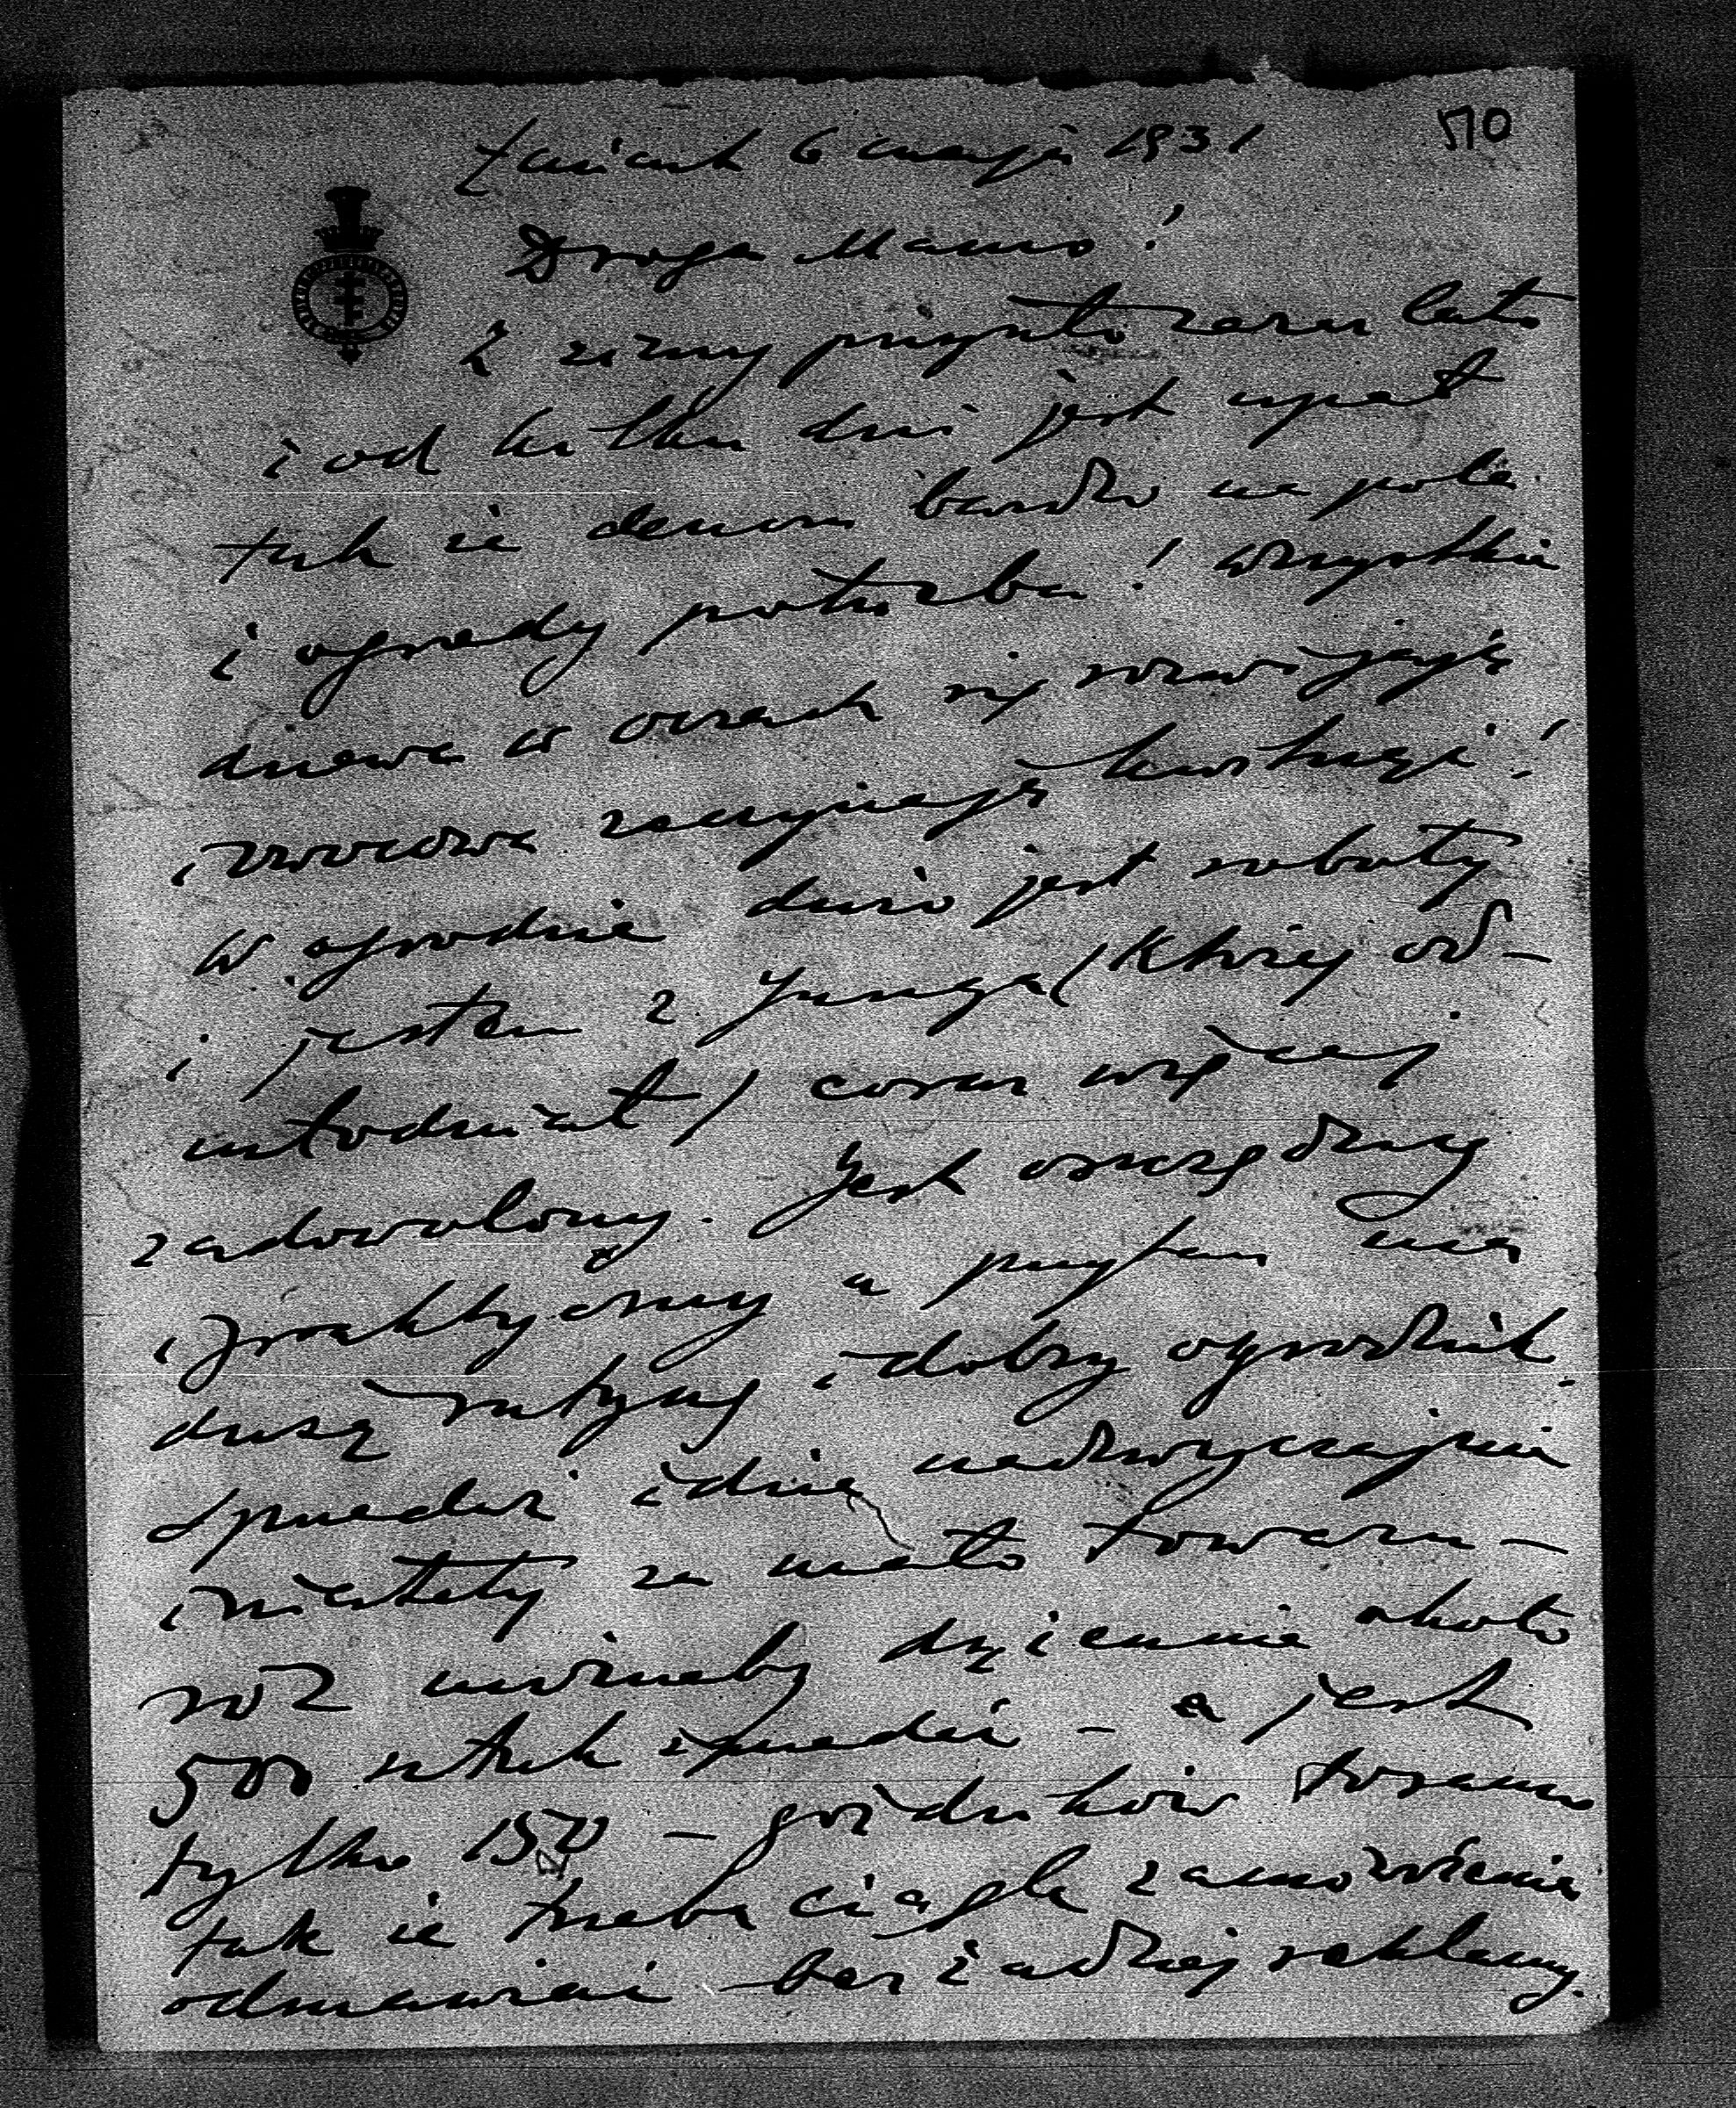 Łańcut 6 maja 1931
510
Droga Mamo!
Z zimy przyszło zaraz lato
i od kilku dni jest upał
tak że deszczu bardzo na pola
i ogrody potrzeba! Wszystkie
drzewa w oczach się rozwijają
i owocowe zaczynają kwitnąć!
W ogrodzie dużo jest roboty
i jestem z Junga (który od-
młodniał) coraz więcej
zadowolony. Jest oszczędny
i praktyczny a przytem ma
dużą rutynę i dobry ogrodnik
Sprzedaż idzie nadzwyczajnie
i niestety za mało towaru –
róż możnaby dziennie około
500 sztuk sprzedać – a jest
tylko 150 – goździków tosamo
tak że trzeba ciągle zamówienia
odmawiać – bez żadnej reklamy.